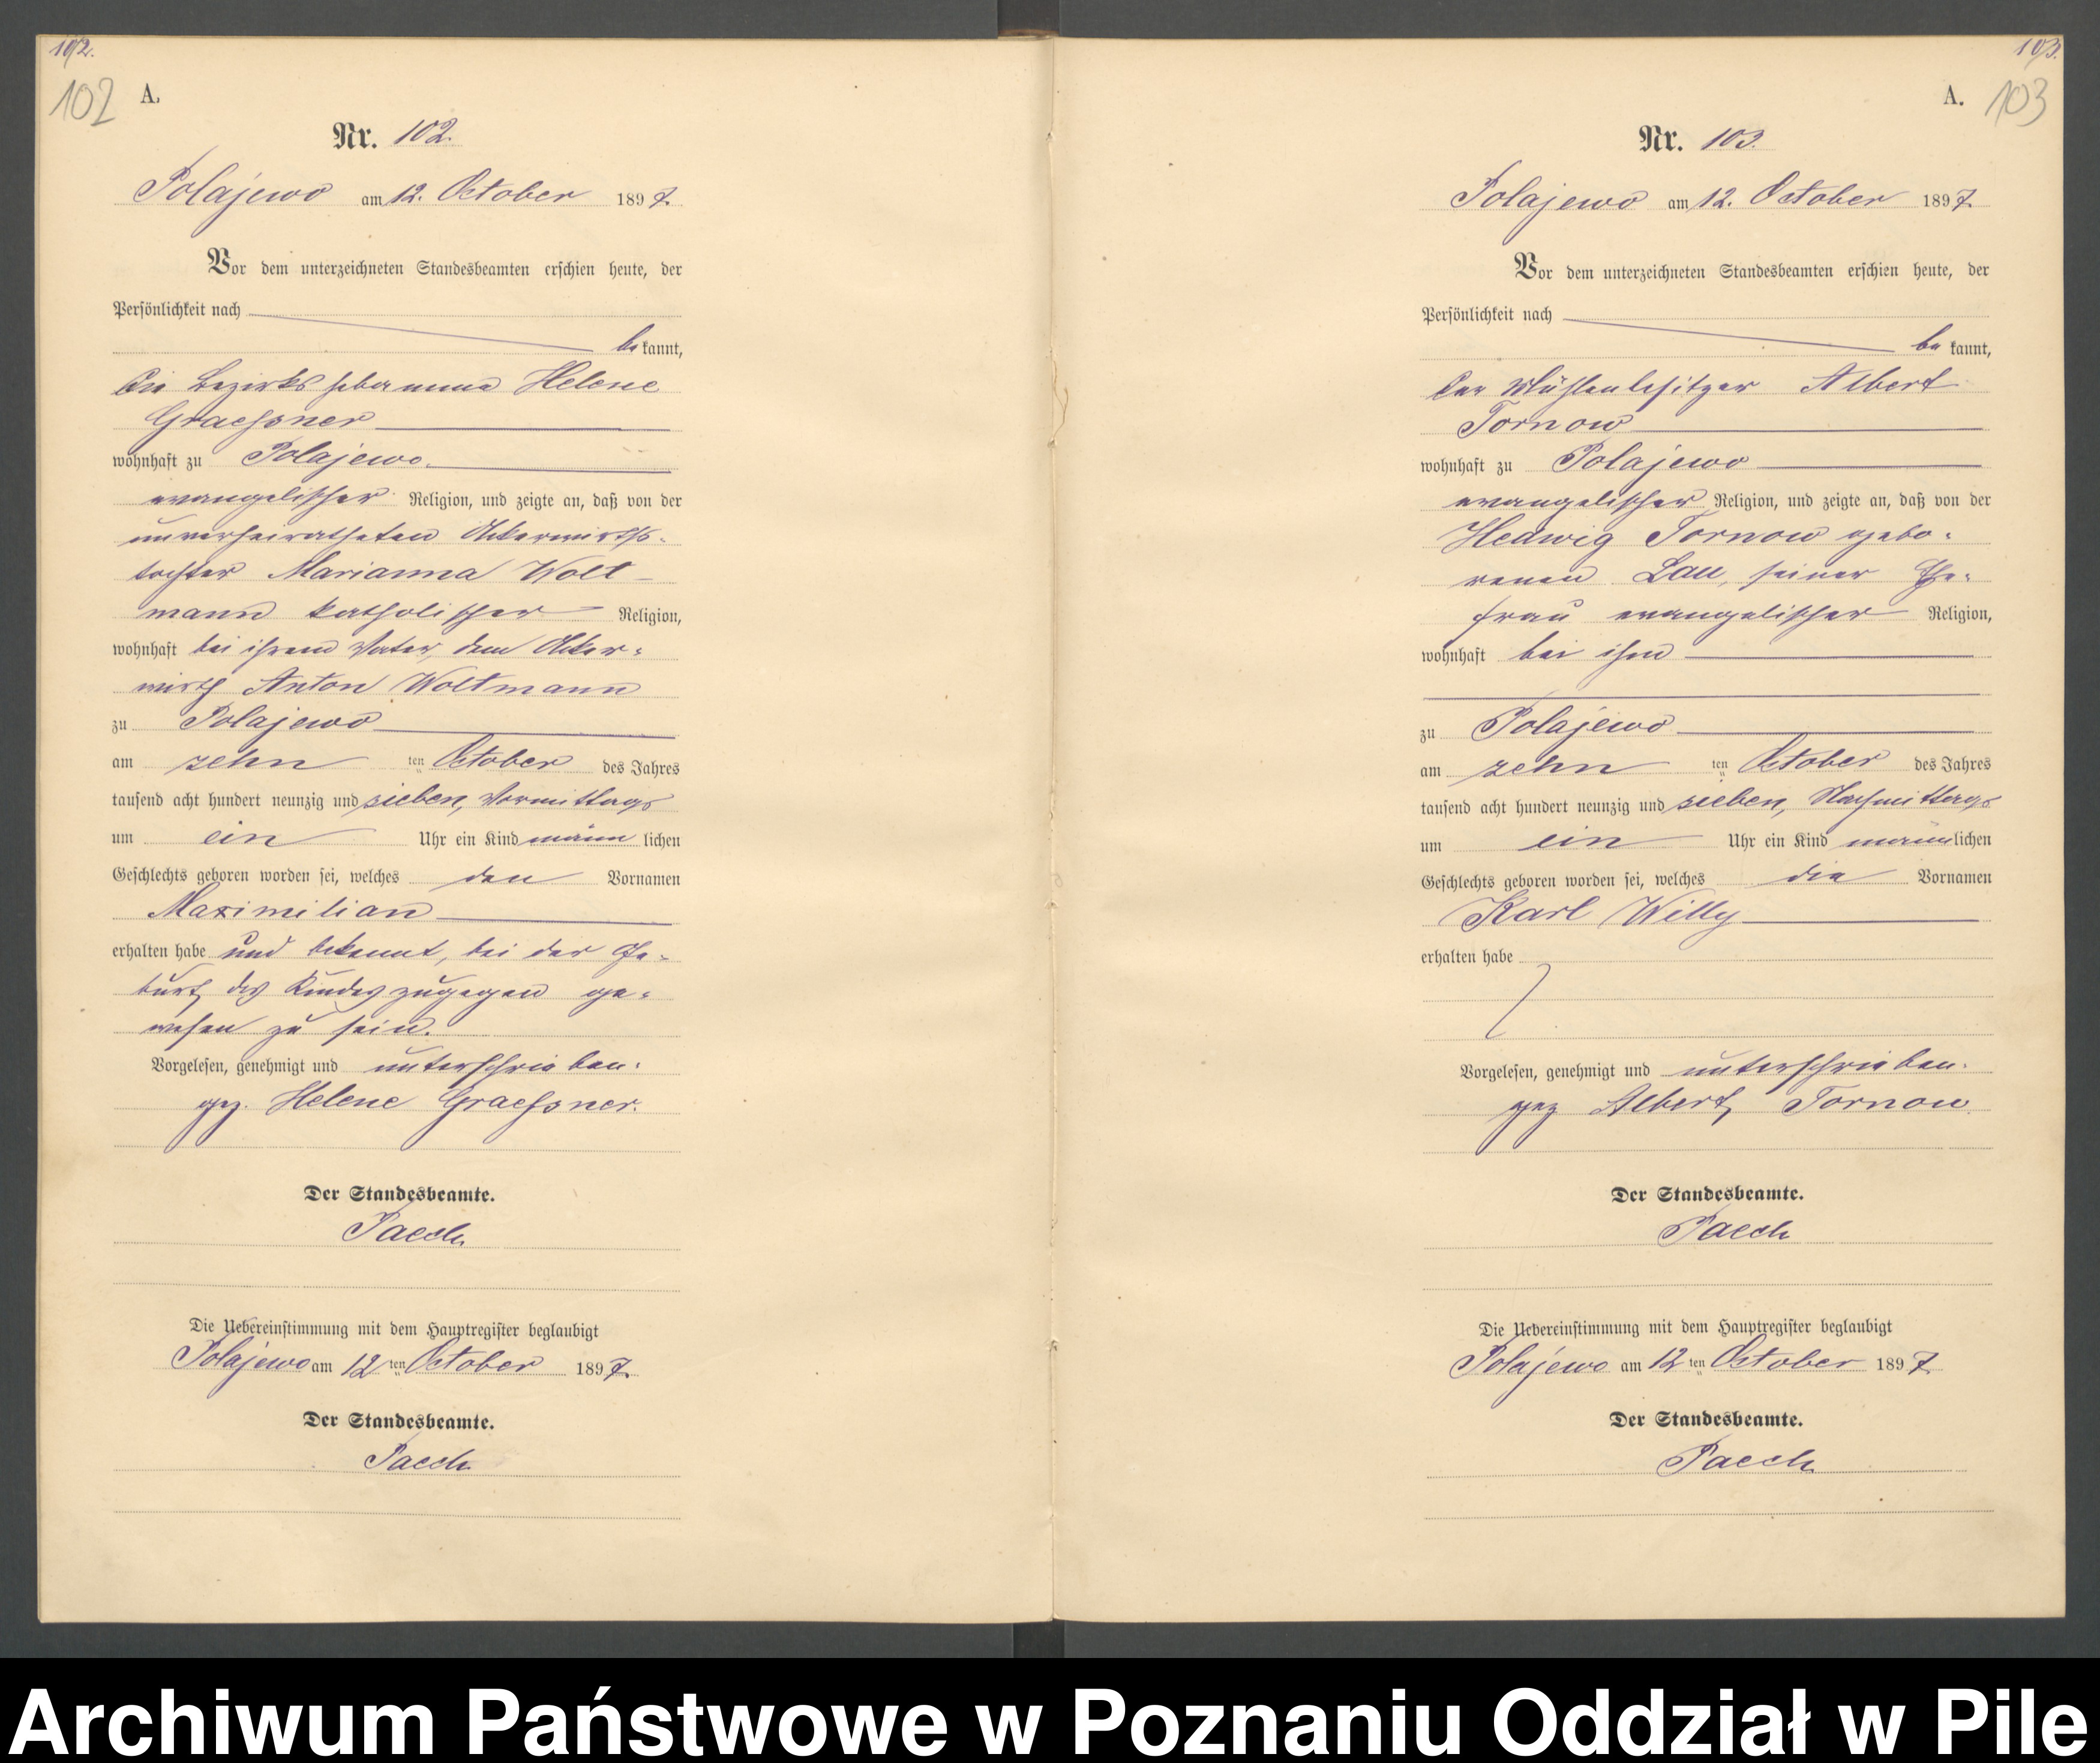 102.
102
A.
Nr. 102.
Polajewo am 12. October 1897.
Vor dem unterzeichneten Standesbeamten erschien heute, der
Persönlichkeit nach
bekannt,
die Bezirkshebamme Helene
Graeßner
wohnhaft zu Polajewo.
evangelischer Religion, und zeigte an, daß von der
unverheiratheten Ackerwirths-
tochter Marianna Wolt-
mann katholischer Religion,
wohnhaft bei ihrem Vater, dem Acker-
wirth Anton Woltmann
zu Polajewo
am zehn ten October des Jahres
tausend acht hundert neunzig und sieben, Vormittags
um ein Uhr ein Kind männlichen
Geschlechts geboren worden sei, welches den Vornamen
Maximilian
erhalten habe und bekennt, bei der Ge-
burt des Kindes zugegen ge-
wesen zu sein.
Vorgelesen, genehmigt und unterschrieben.
gez. Helene Graeßner.
Der Standesbeamte.
Paech
Die Uebereinstimmung mit dem Hauptregister beglaubigt
Polajewo am 12 ten October 1897.
Der Standesbeamte.
Paech
103.
103
A.
Nr. 103.
Polajewo am 12. October 1897.
Vor dem unterzeichneten Standesbeamten erschien heute, der
Persönlichkeit nach
bekannt,
der Mühlenbesitzer Albert
Tornow
wohnhaft zu Polajewo
evangelischer Religion, und zeigte an, daß von der
Hedwig Tornow gebo-
renen Lau, seiner Ehe-
frau evangelischer Religion,
wohnhaft bei ihm
zu Polajewo
am zehn ten October des Jahres
tausend acht hundert neunzig und sieben, Nachmittags
um ein Uhr ein Kind männlichen
Geschlechts geboren worden sei, welches die Vornamen
Karl Willy
erhalten habe
Vorgelesen, genehmigt und unterschrieben.
gez Albert Tornow.
Der Standesbeamte.
Paech
Die Uebereinstimmung mit dem Hauptregister beglaubigt
Polajewo am 12 ten October 1897.
Der Standesbeamte.
Paech
Archiwum Państwowe w Poznaniu Oddział w Pile